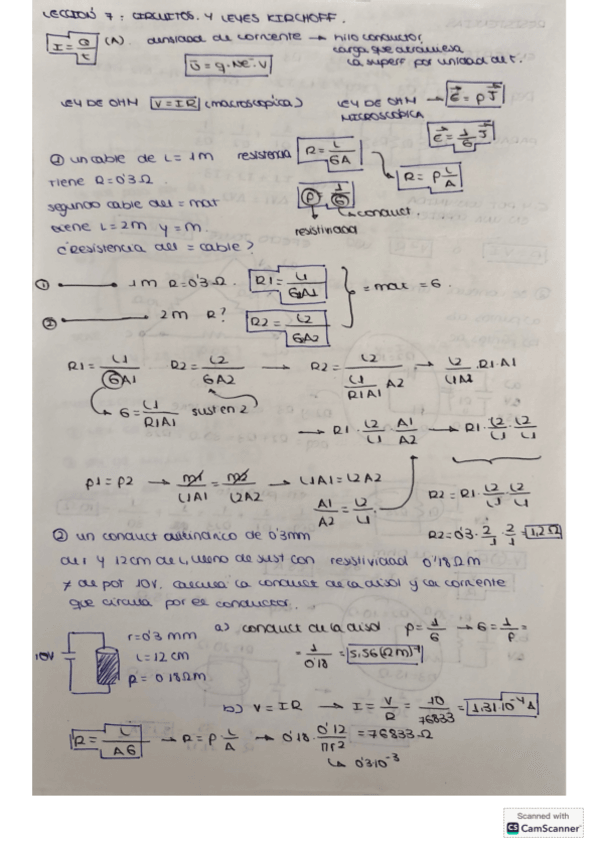 LECCIÓN 7: CIRCUITOS. Y LEYES KIRCHOFF.
I = Q/t (A) densidad de corriente → hilo conductor,
carga que atraviesa
la superf por unidad de t.
J = q·Ne·V
LEY DE OHM V = IR (macroscopica) LEY DE OHM MICROSCOPICA → E = ρJ
E = 1/σ J
① un cable de L = 1m resistencia R = L/σA
R = ρ L/A
tiene R = 0'3 Ω.
segundo cable del = mat ρ = 1/σ → conduct.
tiene L = 2m y = m. resistividad
¿Resistencia del = cable?
① 1m R = 0'3 Ω. R1 = L1/σA1
= mat = σ.
② 2m R? R2 = L2/σA2
R1 = L1/σA1 R2 = L2/σA2 → R2 = L2/(L1/R1A1 A2) → L2/L1A2 · R1·A1
σ = L1/R1A1 sust en 2
→ R1· L2/L1 · A1/A2 → R1· L2/L1 · L2/L1
ρ1 = ρ2 → m1/L1A1 = m2/L2A2 → L1A1 = L2A2
A1/A2 = L2/L1
R2 = R1· L2/L1 · L2/L1
R2 = 0'3 · 2/1 · 2/1 = 1,2 Ω
② un conduct cilindrico de 0'3mm
de r y 12cm de L, lleno de sust con resistividad 0'18 Ωm
≠ de pot 10V. Calcula la conduct de la disol y la corriente
que circula por el conductor.
10V r = 0'3 mm
L = 12 cm
ρ = 0'18 Ωm
a) conduct de la disol ρ = 1/σ → σ = 1/ρ =
= 1/0'18 = 5,56 (Ωm)⁻¹
b) V = IR → I = V/R = 10/76833 = 1.31·10⁻⁴ A
R = L/Aσ → R = ρ· L/A → 0'18 · 0'12/πr² = 76833 Ω
↳ 0'3·10⁻³
Scanned with
CS CamScanner